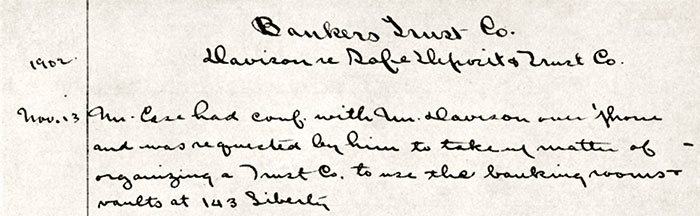 Bankers Trust Co.
Davison re Safe Deposit & Trust Co.
1902.
Nov. 13 Mr. Case had conf. with Mr. Davison over 'phone
and was requested by him to take up matter of -
organizing a Trust Co. to use the banking rooms +
vaults at 143 Liberty